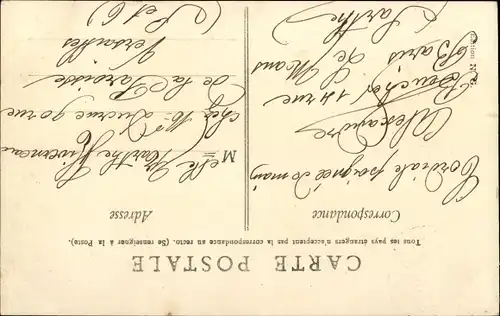 CARTE POSTALE
Tous les pays étrangers n'acceptent pas la correspondance au recto. (Se renseigner à la Poste).
Correspondance
Cordiale poignée de main
Alexandre
Boucher 1 4 rue
Paris Le Mans
Sarthe
Adresse
M elle Marthe Hivernau
chez Mr Ducrue 90 rue
de la Paroisse
Versailles
(S et O)